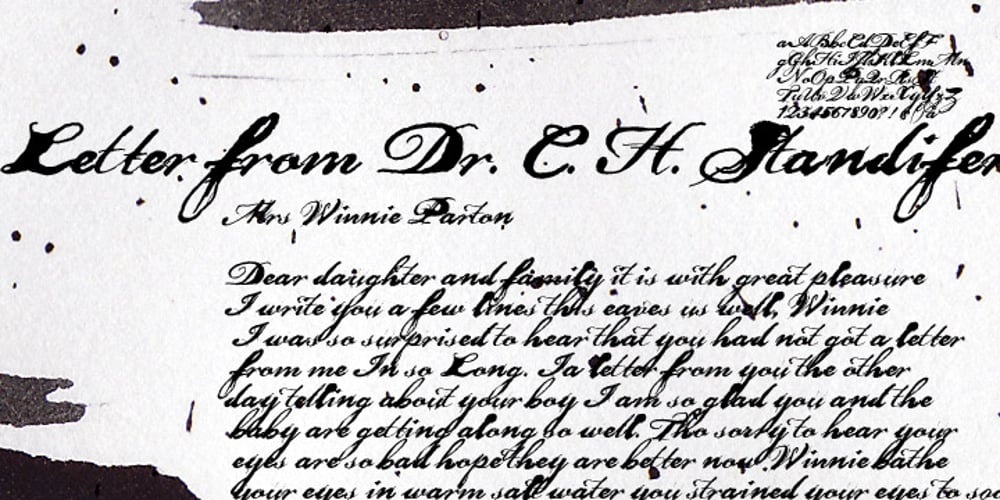 aABbcCdDeEfF
gGhHiIJjkKlLmMn
NoOpPqQrRsS
TuUvVwWxXyYzZ
1234567890?!&()a
Letter from Dr. C. H. Standifer
Mrs Winnie Parton
Dear daughter and family it is with great pleasure
I write you a few lines this eaves us well, Winnie
I was so surprised to hear that you had not got a letter
from me In so Long. Ia letter from you the other
day telling about your boy I am so glad you and the
baby are getting along so well. Tho sorry to hear your
eyes are so bad hope they are better now. Winnie bathe
your eyes in warm salt water you strained your eyes to